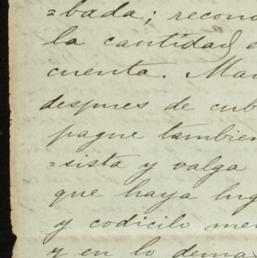 =bada; recono
la cantidad e
cuenta. Man
despues de cub
pague tambien
=sista y valga
que haya lug
y codicilo me
y en lo dema